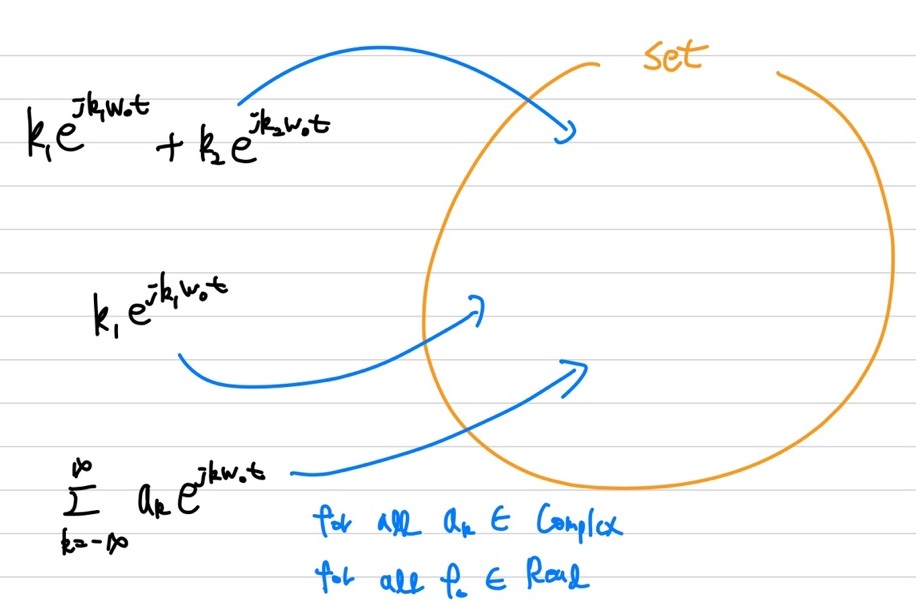 set
k₁e^{jk₁ω₀t} + k₂e^{jk₂ω₀t}
k₁e^{jk₁ω₀t}
∑_{k=-∞}^{∞} aₖe^{jkω₀t}
for all aₖ ∈ Complex
for all f₀ ∈ Real